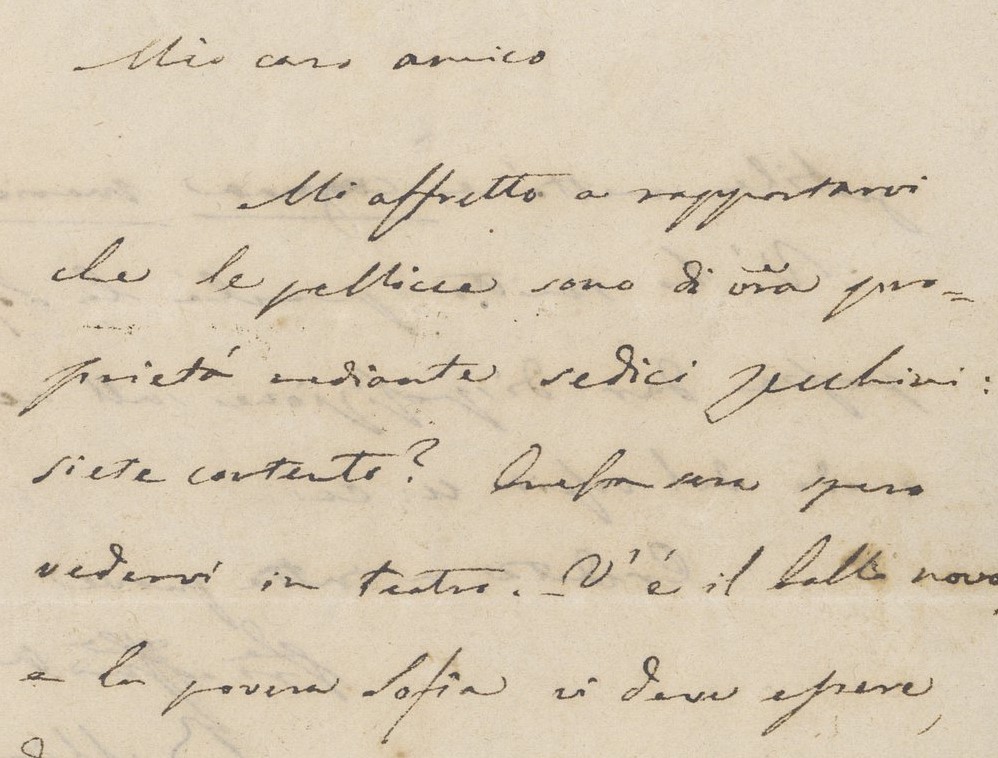 Mio caro amico
Mi affretto a rapportarvi
che le pellicce sono di vr̃a pro=
prietá mediante sedici zecchini:
siete contento? Questa sera spero
vedervi in teatro. V'é il ballo novo
e la povera Sofia vi deve essere,